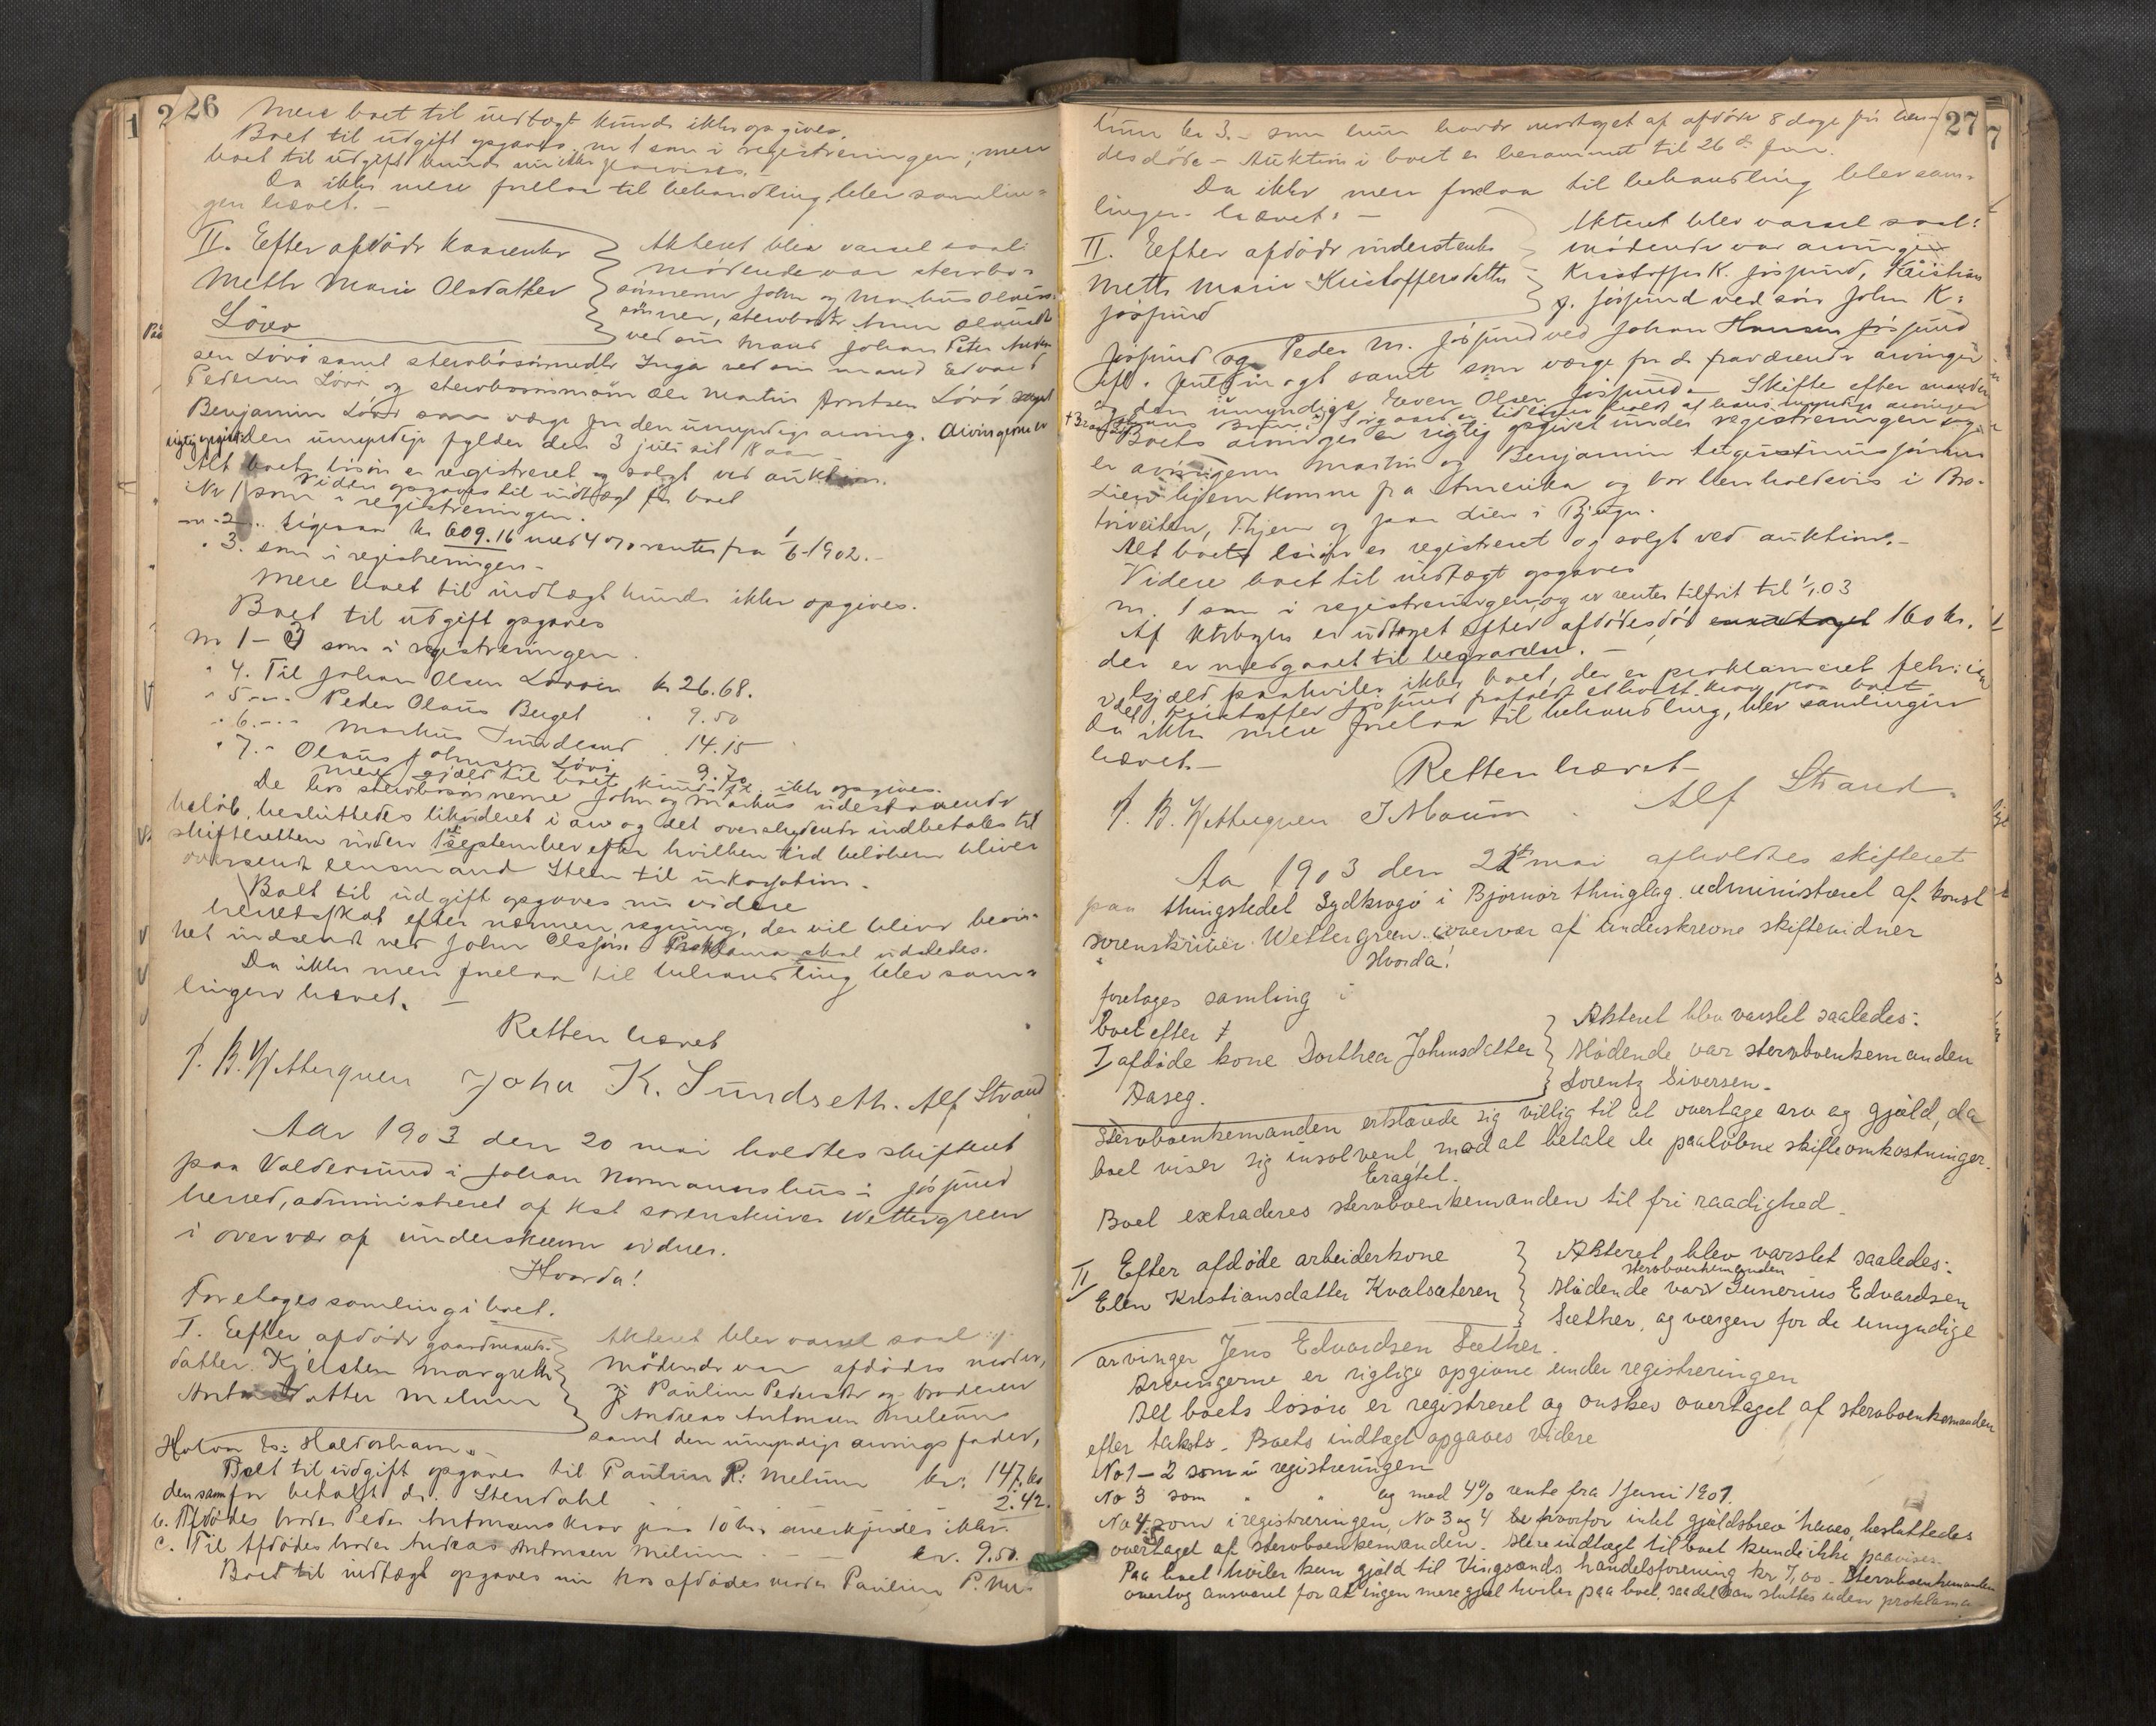 26
Mere boet til indtægt kunde ikke opgives.
Boet til udgift opgaves nr 1 som i registreringen; mere
boet til udgift kunde nu ikke paavises.
Da ikke mere forelaa til behandling blev samlin-
gen hævet. -
II. Efter afdøde kaarenke
Mette Marie Olsdatter
Løvø
Akteret blev varsel saal:
Mødende var stervbo-
sønnerne John og Markus Olaus-
sønner, Anna Olausdtr
ved sin mand Johan Peter Ander-
sen Løvø samt Inga ved sin mand Edvard
Pedersen Løvø og Ole Martin Arntsen Løvø samt
Benjamin Løvø som værge for den umyndige arving. Arvingerne er
rigtig opgivet den umyndige fylder den 3 juli sit 18 aar
Alt boets løsøre er registreret og solgt ved auktion.
Videre opgaves til indtægt for boet
Nr 1 som i registreringen.
" 2 ligesaa kr 609.16 med 4 % renter fra 1/6 1902. -
" 3. som i registreringen -
Mere boet til indtægt kunde ikke opgives.
Boet til udgift opgaves
nr 1 - 3 som i registreringen.
" 4. Til Johan Olsen kr 26.68.
" 5 " Peder Olaus Berget " 9.50
" 6. " Markus Sundland " 14.15
" 7. " Olaus Johnsen Løvø 9.70
Mere gjæld til boet kunde ikke opgives.
De hos stervbosønnerne John og Markus udestaaende
beløb, besluttedes likvideret i arv og det overskydende indbetales til
skifteretten inden 1ste september efter hvilken tid beløbene bliver
oversendt lensmand Steen til inkassation.
Boet til udgift opgaves nu videre
herredsskat efter nærmere regning, der vil blive bevir-
ket indsendt ved John Olssøn. Proklama skal udstedes.
Da ikke mere forelaa til behandling blev sam-
lingen hævet. -
Retten hævet
P. B. Wettergreen John K. Sundseth. Alf Strand
Aar 1903 den 20 mai holdtes skifteret
paa Valdersund i Johan Normanns hus i Jøssund
herred, administreret af kst sorenskriver Wettergreen
i overvær af underskrevne vidner.
Hvorda!
Foretoges samling i boet.
I. Efter afdøde gaardmands-
datter Kjersten Margrethe
Antonsdatter Melum
Akteret blev varsel saal:
Mødende var afdødes moder,
Pauline Pedersdtr og broderen
Andreas Antonsen Melum
samt den umyndige arvings fader,
Boet til udgift opgaves til Pauline P. Melum kr. 147.60
den samme for betalt dr. Stendahl 2.42.
b. Afdødes broder Peder Antonsens krav paa 10 kr anerkjendes ikke.
c. Til Afdødes broder Andreas Antonsen Melum - - kr. 9.50.
Boet til indtægt opgaves nu hos afdødes moder Pauline P. Me-
27
lum kr 3. - som hun havde modtaget af afdøde 8 dage før hen-
des død. - Auktion i boet er berammet til 26 ds
Da ikke mere forelaa til behandling blev sam-
lingen hævet: -
II. Efter afdøde inderstenke
Mette Marie Kristoffersdatter
Jøssund
Akteret blev varsel saal:
mødende var
Kristoffer K. Jøssund, Kristian
J. Jøssund ved søn John K.
Jøssund og Peder M. Jøssund ved Johan Hansen Jøssund
ifl. fuldmagt samt som værge for de fraværende arvinger
og den umyndige Even Olsen Jøssund. Skifte efter manden
Boets arvinger er rigtig opgivet under registreringen
er arvingerne Martin og Benjamin
hjemkomne fra Amerika og bor henholdsvis i
Thjem og paa Lien i Bjugn.
Alt boets løsøre er registreret og solgt ved auktion. -
Videre boet til indtægt opgaves
nr. 1 som i registreringen, og er renter tilfrit til 1/1 03
Af bankbogen er udtaget efter afdødes død 160 kr.
der er medgaaet til begravelse. -
Gjæld paahviler ikke boet, der er proklameret
Kristoffer Jøssund frafaldt ethvert krav paa boet
Da ikke mere forelaa til behandling, blev samlingen
hævet. -
Retten hævet
P. B. Wettergreen J Moum Alf Strand.
Aa 1903 den 22de mai afholdtes skifteret
paa thingstedet Sydkrogø i Bjørnør thinglag administreret af konst
sorenskriver Wettergreen i overvær af underskrevne skiftevidner
Hvorda!
foretoges samling i
boet efter
I afdøde kone Dorthea Johnsdatter
Aaseg.
Akteret blev varslet saaledes:
Mødende var stervboenkemanden
Lorentz Siversen.
Stervboenkemanden erklærede sig villig til at overtage arv og gjæld, da
boet viser sig insolvent, mod at betale de paaløbne skifteomkostninger.
Eragtet.
Boet extraderes stervboenkemanden til fri raadighed.
II Efter afdøde arbeiderkone
Elen Kristiansdatter Kvalsæteren
Akteret blev varslet saaledes:
stervboenkemanden
Mødende var Junerius Edvardsen
Sæther, og værgen for de umyndige
arvinger Jens Edvardsen Sæther.
Arvingerne er rigtige opgivne under registreringen
Alt boets løsøre er registreret og ønskes overtaget af stervboenkemanden
efter takst. Boets indtægt opgaves videre
No 1 - 2 som i registreringen
No 3 som " " og med 4% rente fra 1 Juni 1901.
No 4 som i registreringen, No 3 og 4 hvorfor intet gjældsbrev haves, besluttedes
overtaget af stervboenkemanden. Mere indtægt til boet kunde ikke paavises.
Paa boet hviler kun gjæld til Vingsands handelsforening kr 7,00. Stervboenkemanden
overtog ansvaret for at ingen mere gjæl hviler paa boet, saa det kan sluttes uden proklama